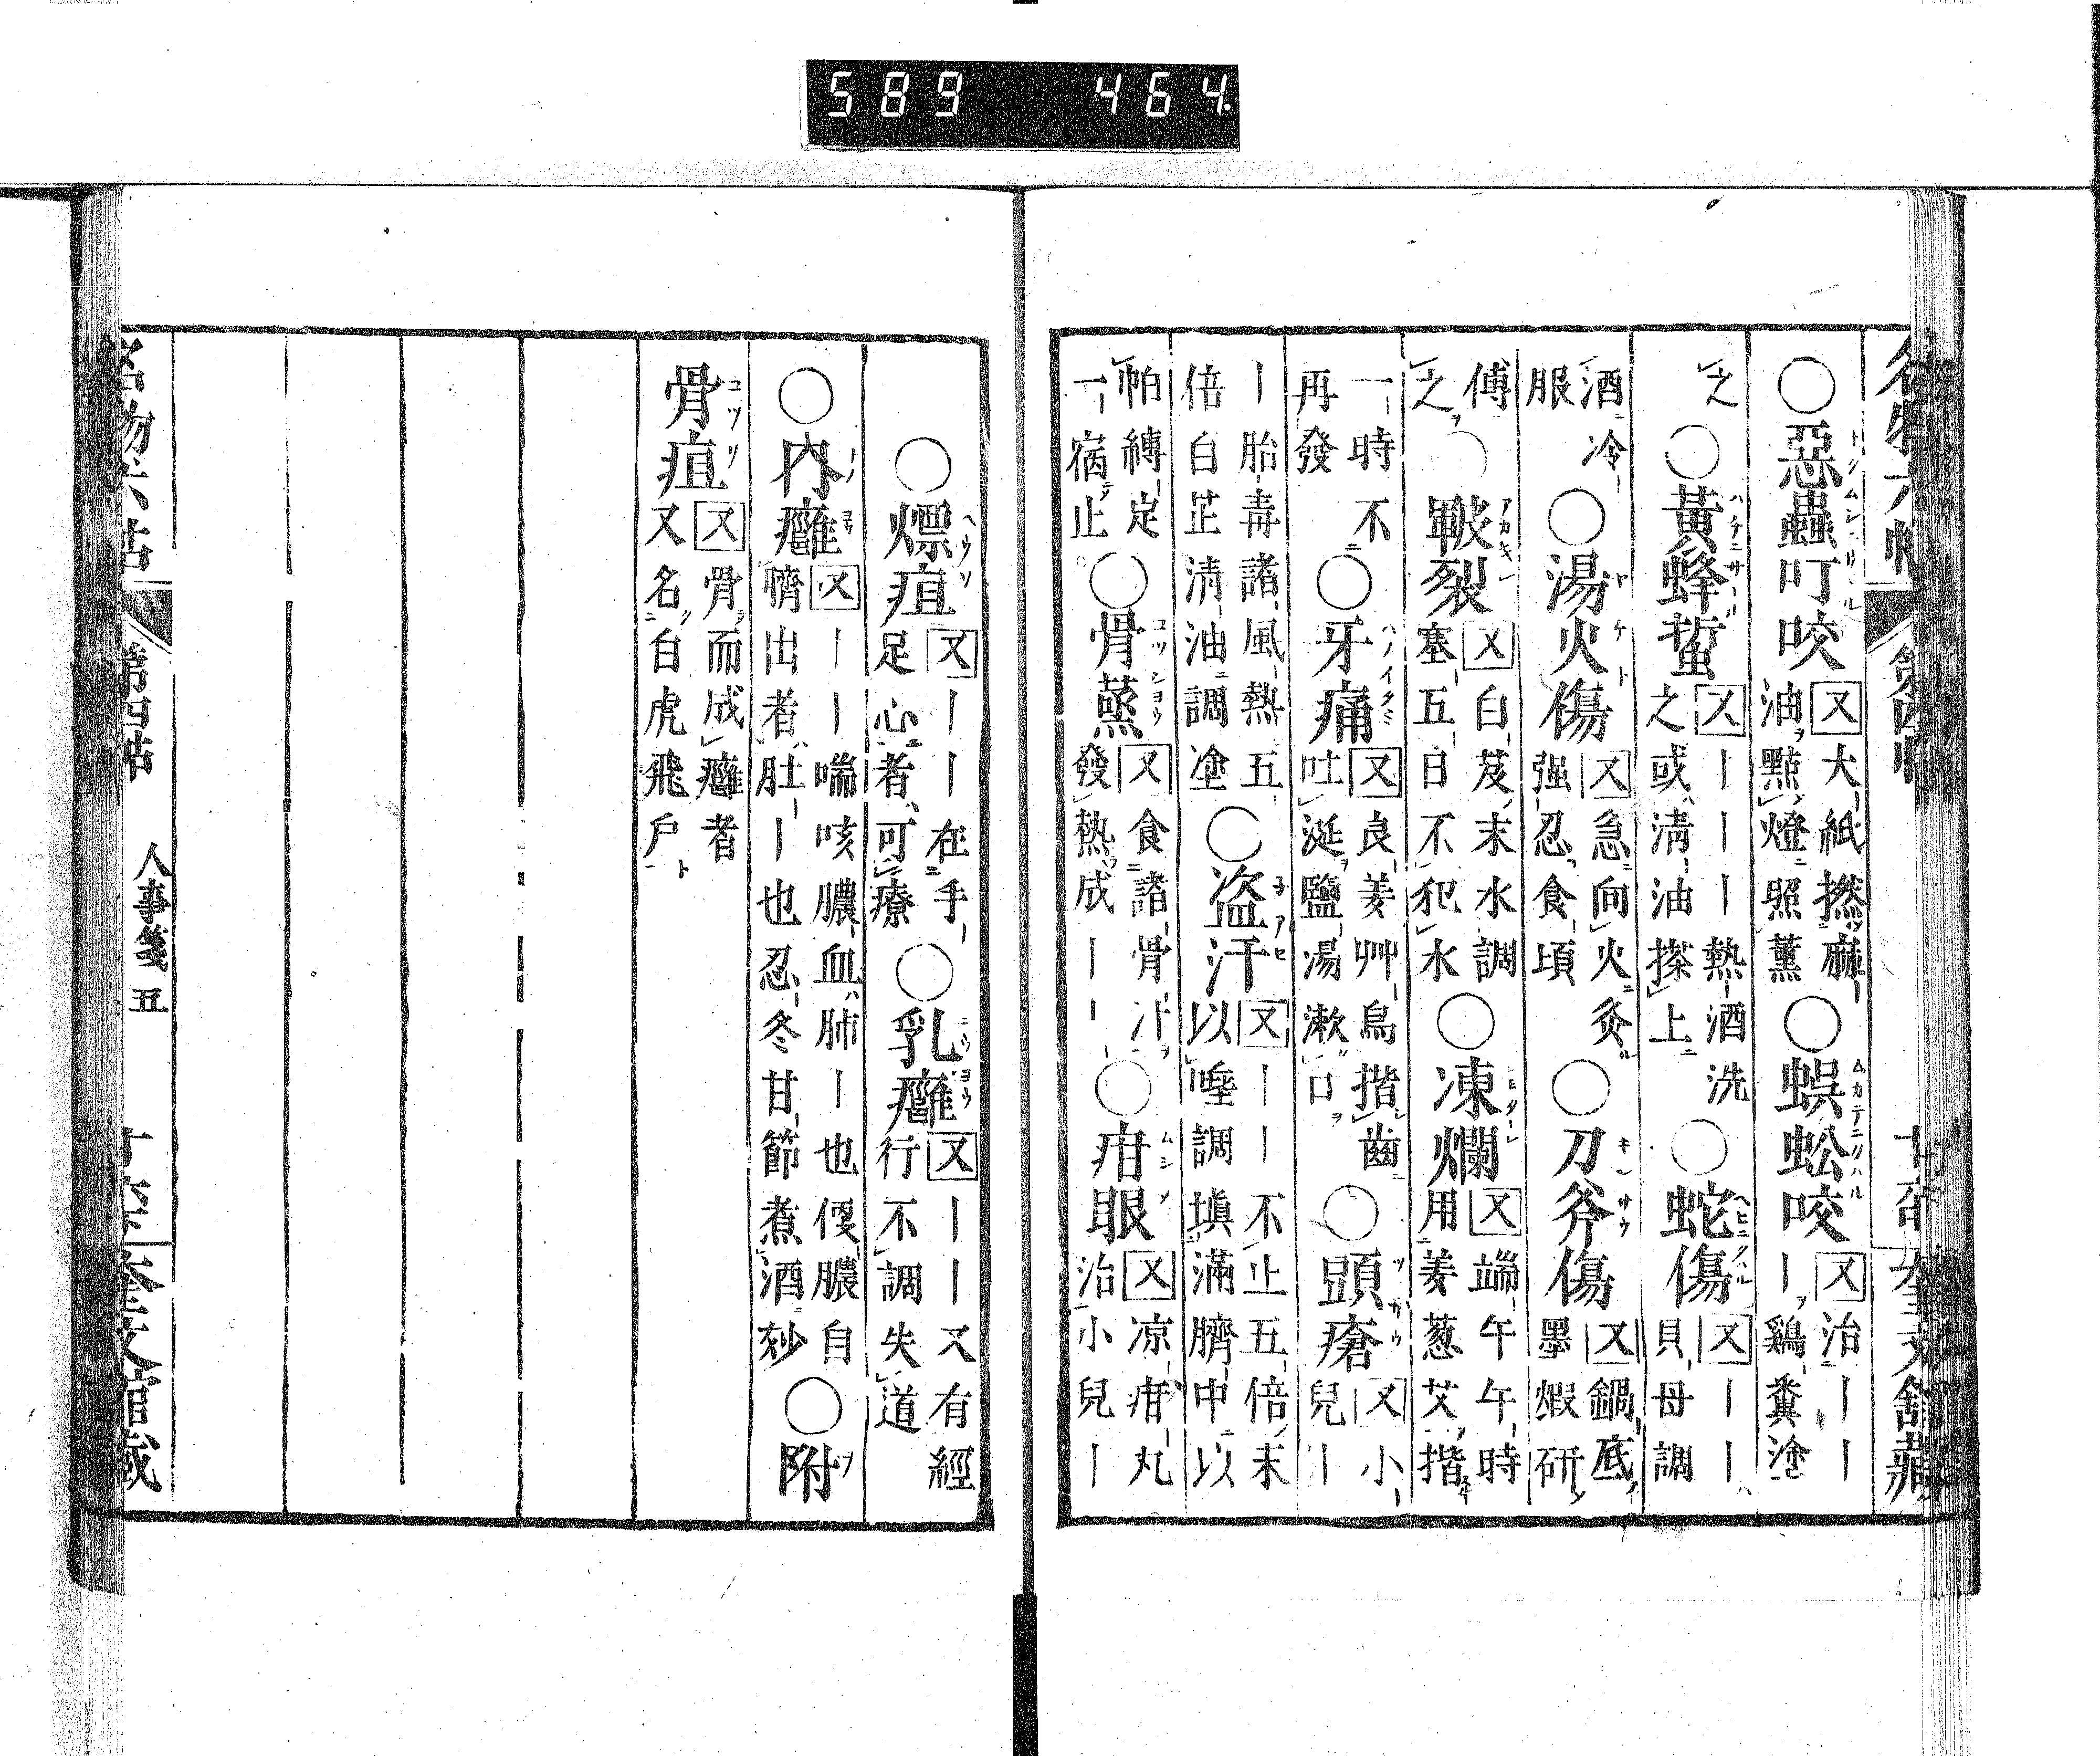 589 464
○惡蟲叮咬 又 大紙撚麻油點燈照薰 ○蜈蚣咬 又 治｜｜｜鷄糞塗
之 ○黃蜂蜇 又 ｜｜｜熱酒洗之或清油搽上 ○蛇傷 又 ｜｜貝母調
酒冷服 ○湯火傷 又 急向火灸强忍食頃 ○刀斧傷 又 鍋底墨煆研
傅之 ○皸裂 又 白芨末水調塞五日不犯水 ○凍爛 又 端午午時用姜葱艾揩
一時不再發 ○牙痛 又 良姜艸烏揩齒吐涎鹽湯漱口 ○頭瘡 又 小兒｜
｜胎毒諸風熱五倍白芷清油調塗 ○盜汗 又 ｜｜不止五倍末以唾調塡滿臍中以
帕縛定一宿止 ○骨蒸 又 食諸骨汁發熱成｜｜ ○疳眼 又 凉疳丸治小兒｜
○熛疽 又 ｜｜在手足心者可療 ○乳癰 又 ｜｜又有經行不調失道
○內癰 又 ｜｜喘咳膿血肺｜也便膿自臍出者肚｜也忍冬甘節煮酒妙 ○附
骨疽 又 骨而成癰者又名白虎飛尸
名物六帖 第四帖 人事箋五 奎文館藏